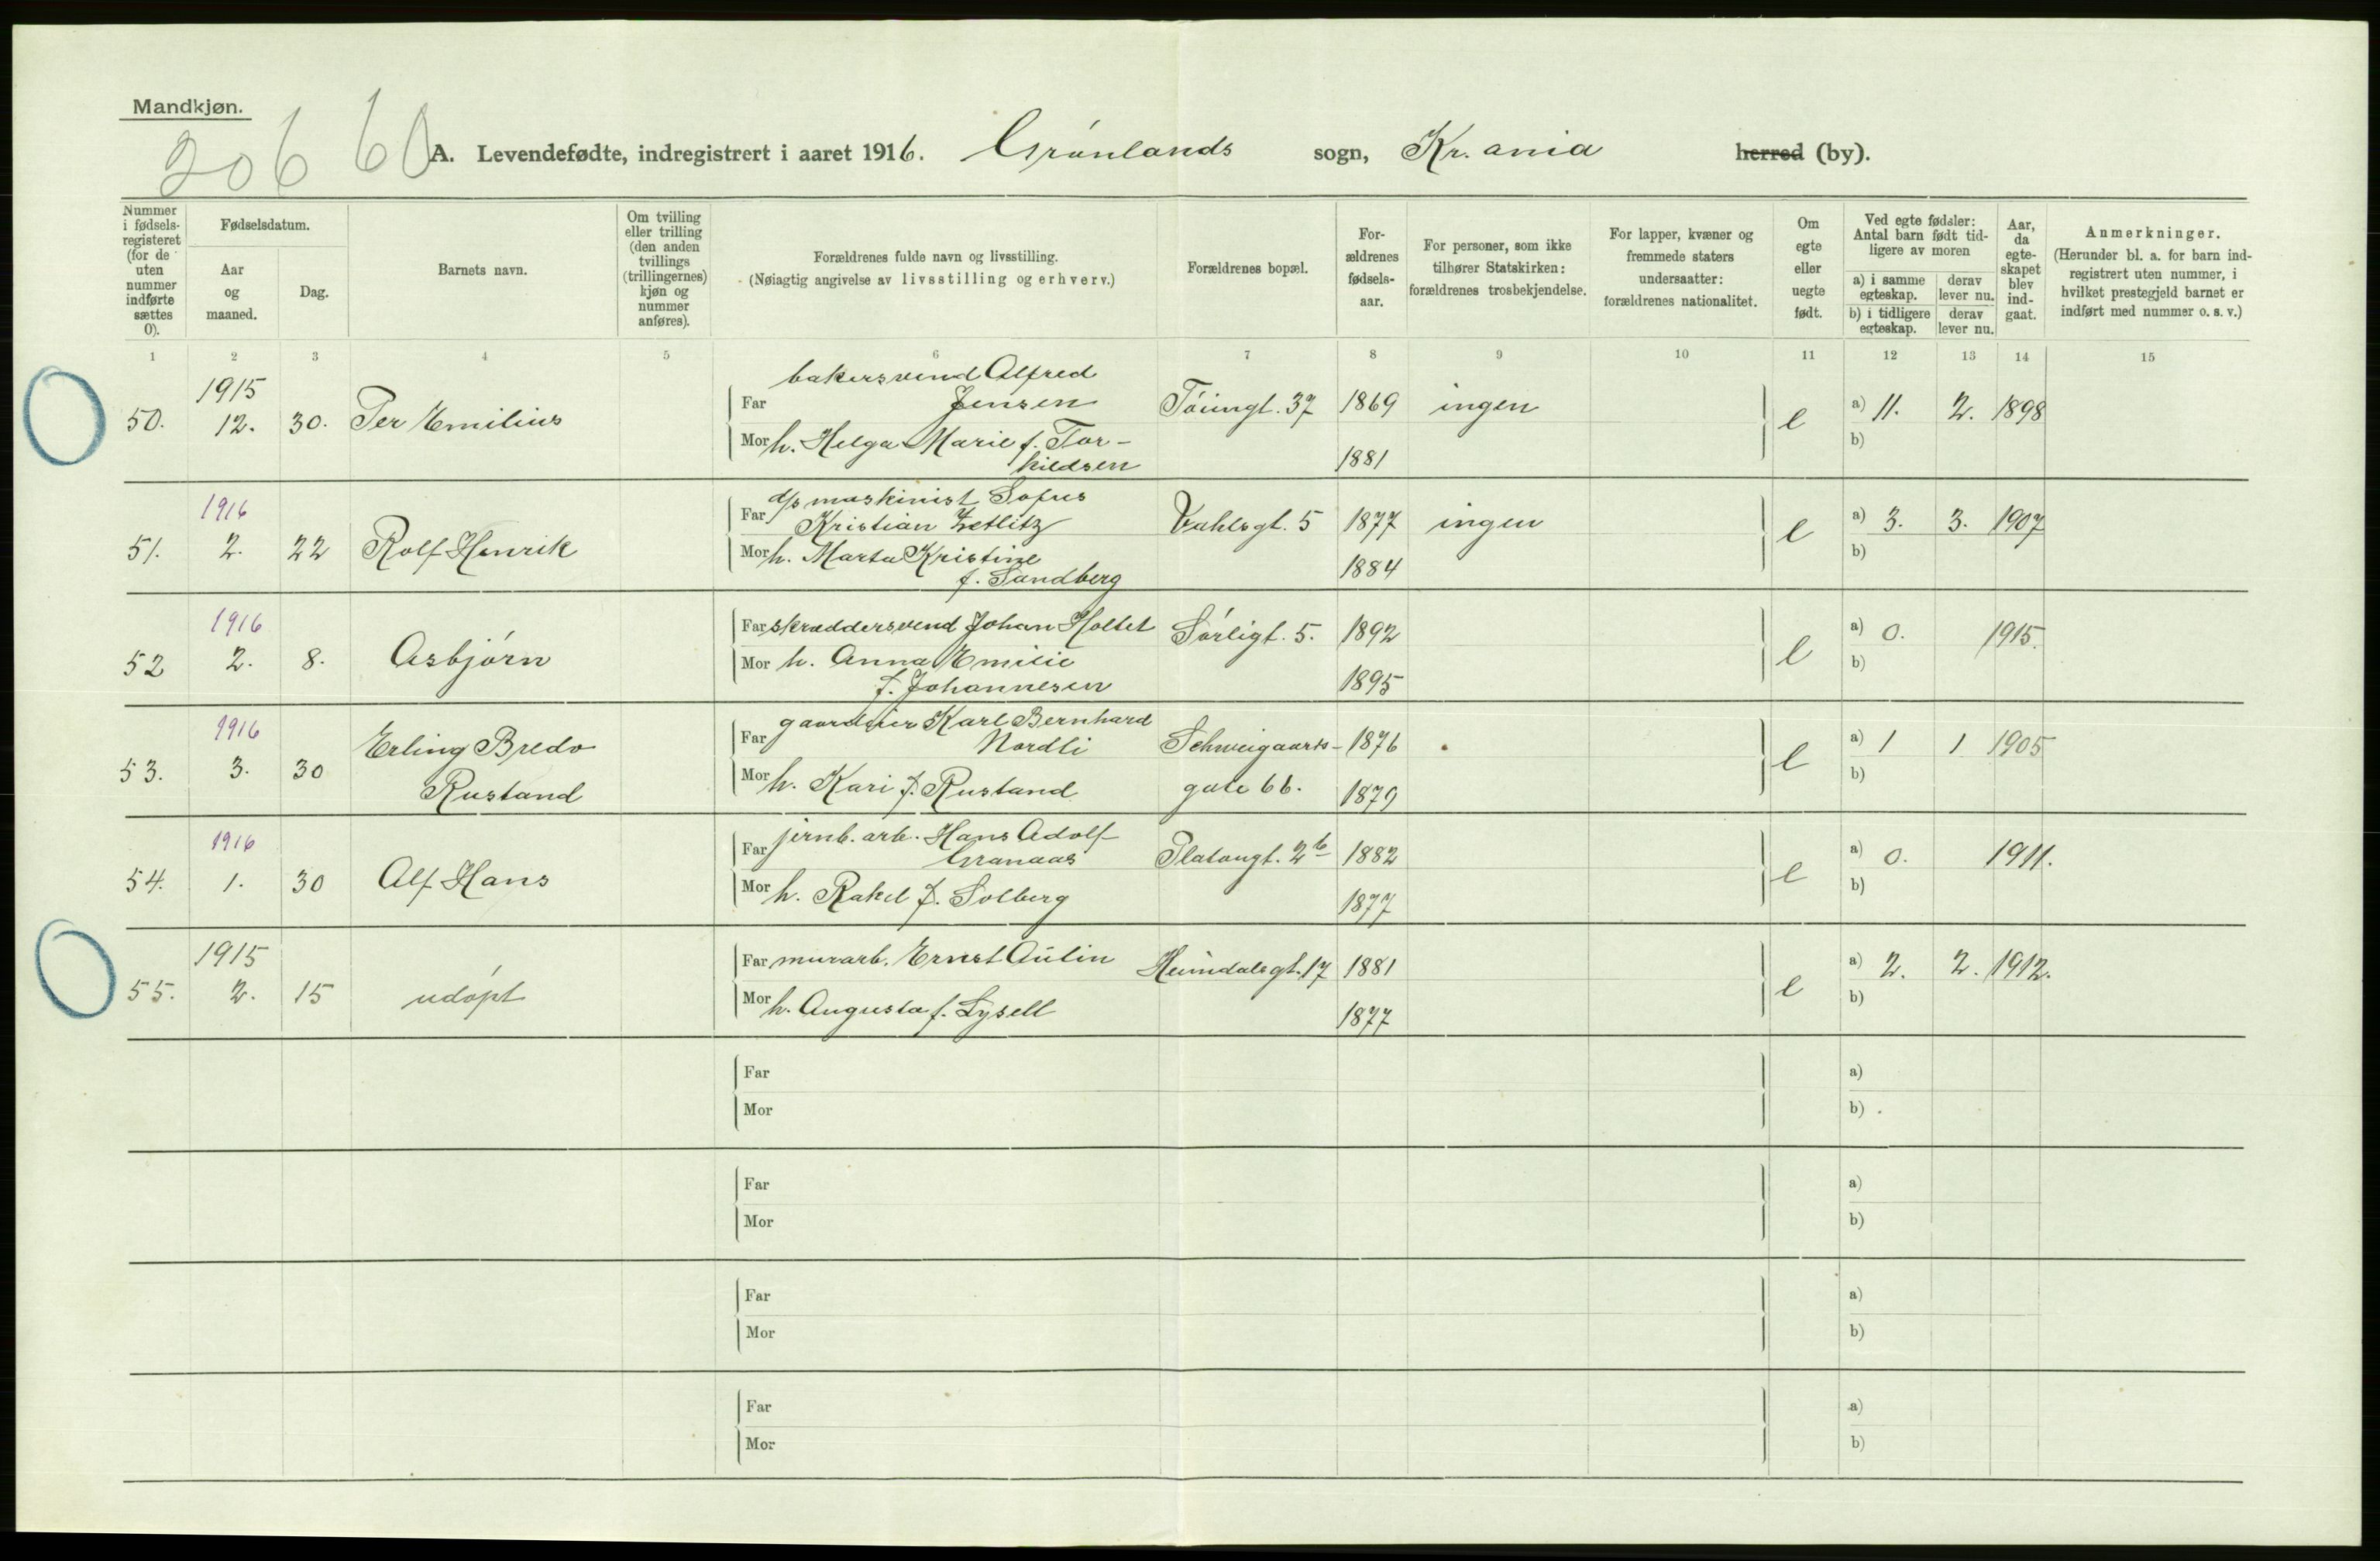 Mandkjøn.
206 60
A. Levendefødte, indregistrert i aaret 1916. Grønlands sogn, Kr.ania herred (by).
Nummer i fødsels-registeret (for de uten nummer indførte sættes 0).
Fødselsdatum.
Aar og maaned.
Dag.
Barnets navn.
Om tvilling eller trilling (den anden tvillings (trillingernes) kjøn og nummer anføres).
Forældrenes fulde navn og livsstilling.
(Nøiagtig angivelse av livsstilling og erhverv.)
Forældrenes bopæl.
For-ældrenes fødsels-aar.
For personer, som ikke tilhører Statskirken: forældrenes trosbekjendelse.
For lapper, kvæner og fremmede staters undersaatter: forældrenes nationalitet.
Om egte eller uegte født.
Ved egte fødsler: Antal barn født tid-ligere av moren
a) i samme egteskap.
derav lever nu.
b) i tidligere egteskap.
derav lever nu.
Aar, da egte-skapet blev ind-gaat.
Anmerkninger.
(Herunder bl. a. for barn ind-registrert uten nummer, i hvilket prestegjeld barnet er indført med nummer o. s. v.)
1 2 3 4 5 6 7 8 9 10 11 12 13 14 15
1915 bakersvend Alfred
50. 12. 30. Per Emilius Far Jensen Tøiengt. 37 1869 ingen e a) 11. 2. 1898
Mor h. Helga Marie f. Tor- b)
kildsen 1881
1916 d/s maskinist Sofus
51. 2. 22 Rolf Henrik Far Kristian Zetlitz Vahlsgt. 5 1877 ingen e a) 3. 3. 1907
Mor h. Marta Kristine b)
f. Sandberg 1884
1916
52 2. 8. Asbjørn Far skræddersvend Johan Holtet Sørligt. 5. 1892 e a) 0. 1915.
Mor h. Anna Emilie b)
f. Johannesen 1895
1916 Karl Bernhard
53. 3. 30 Erling Bredo Far Nordli Schweigaards- 1876 e a) 1 1 1905
Rustand Mor h. Kari f. Rustand gate 66. 1879 b)
1916 jernb. arb. Hans Adolf
54. 1. 30 Alf Hans Far Granaas Platougt. 2b 1882 e a) 0. 1911.
Mor h. Rakel f. Solberg 1877 b)
1915
55. 2. 15 udøpt Far murarb. Ernst Aulin Heimdalsgt. 17 1881 e a) 2. 2. 1912.
Mor h. Augusta f. Lysell 1877 b)
Far a)
Mor b)
Far a)
Mor b)
Far a)
Mor b)
Far a)
Mor b)